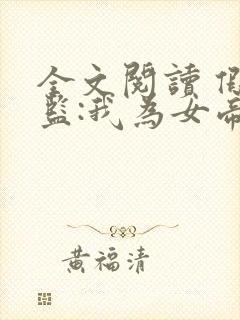 全文閱讀 假
監:我為女帝
黃福清